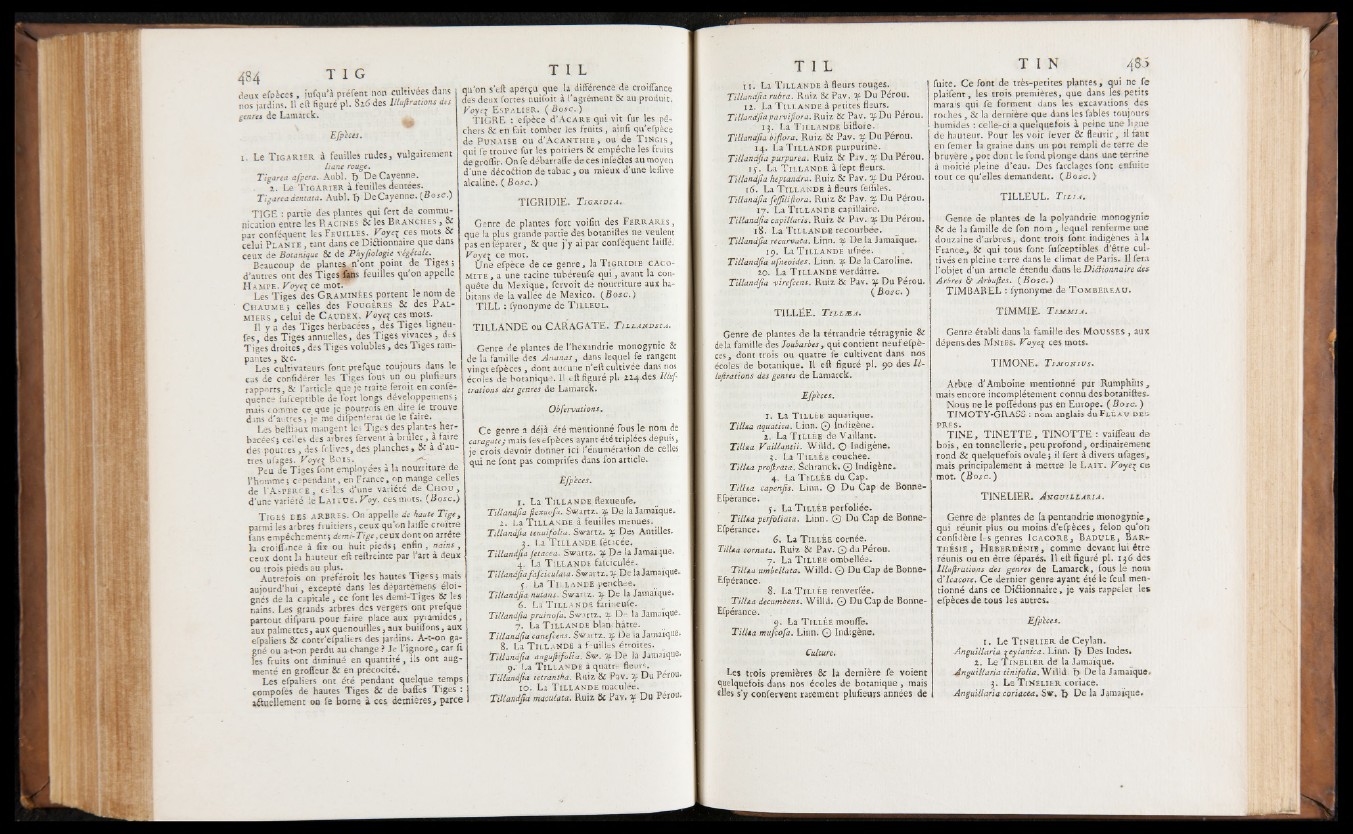 484 T I G
deux espèces, jusqu'à présent non cultivées dans
nos jardins. Il est figuré pl. 826 des Illustrations des
genres de Lamarck.
Espèces.
1. Le TIGARIER à feuilles rudes, vulgairement
liane rouge.
Tigarea aspera. Aubl. ♄ De Cayenne.
2. Le TIGARIER à feuilles dentées.
Tigarea dentata. Aubl. ♄ De Cayenne. (Bosc.)
TIGE : partie des plantes qui sert de commu-
nication entre les RACINES & les BRANCHES, &
par conséquent les FEUILLES. Voyez ces mots &
celui PLANTE, tant dans ce Dictionnaire que dans
ceux de Botanique & de Physiologie végétale.
Beaucoup de plantes n'ont point de Tiges ;
d'autres ont des Tiges sans feuilles qu'on appelle
HAMPE. Voyez ce mot.
Les Tiges des GRAMINÉES portent le nom de
CHAUME ; celles des FOUGÈRES & des PAL-
MIERS, celui de CAUDEX. Voyez ces mots.
Il y a des Tiges herbacées, des Tiges ligneu-
ses, des Tiges annuelles, des Tiges vivaces, des
Tiges droites, des Tiges volubles, des Tiges ram-
pantes, &c.
Les cultivateurs sont presque toujours dans le
cas de considérer les Tiges sous un ou plusieurs
rapports, & l'article que je traite seroit en consé-
quence susceptible de fort longs développemens ;
mais comme ce que je pourrois en dire se trouve
dans d'autres, je me dispenserai de le faire.
Les bestiaux mangent les Tiges des plantes her-
bacées ; celles des arbres servent à brûler, à faire
des poutres, des solives, des planches, & à d'au-
tres usages. Voyez BOIS.
Peu de Tiges sont employées à la nourriture de
l'homme ; cependant, en France, on mange celles
de l'ASPERGE, celles d'une variété de CHOU,
d'une variété de LAITUE. Voy. ces mots. (Bosc.)
TIGES DES ARBRES. On appelle de haute Tige,
parmi les arbres fruitiers, ceux qu'on laisse croître
sans empêchement ; demi-Tige, ceux dont on arrête
la croissance à six ou huit pieds ; enfin, nains,
ceux dont la hauteur est restreinte par l'art à deux
ou trois pieds au plus.
Autrefois on préféroit les hautes Tiges ; mais
aujourd'hui, excepté dans les départemens éloi-
gnés de la capitale, ce sont les demi-Tiges & les
nains. Les grands arbres des vergers ont presque
partout disparu pour faire place aux pyramides,
aux palmettes, aux quenouilles, aux buissons, aux
espaliers & contr'espaliers des jardins. A-t-on ga-
gné ou a-t-on perdu au change ? Je l'ignore, car si
les fruits ont diminué en quantité, ils ont aug-
menté en grosseur & en précocité.
Les espaliers ont été pendant quelque temps
composés de hautes Tiges & de basses Tiges :
actuellement on se borne à ces dernières, parce
T I L
qu'on s'est aperçu que la différence de croissance
des deux sortes nuisoit à l'agrément & au produit.
Voyez ESPALIER. (Bosc.)
TIGRE : espèce d'ACARE qui vit sur les pê-
chers & en fait tomber les fruits, ainsi qu'espèce
de PUNAISE ou d'ACANTHIE, ou de TINGIS,
qui se trouve sur les poiriers & empêche les fruits
de grossir. On se débarrasse de ces insectes au moyen
d'une décoction de tabac, ou mieux d'une lessive
alcaline. (Bosc.)
TIGRIDIE. TIGRIDIA.
Genre de plantes fort voisin des FERRARES,
que la plus grande partie des botanistes ne veulent
pas en séparer, & que j'y ai par conséquent laissé.
Voyez ce mot.
Une espèce de ce genre, la TIGRIDIE CACO-
MITE, a une racine tubéreuse qui, avant la con-
quête du Mexique, servoit de nourriture aux ha-
bitans de la vallée de Mexico. (Bosc.)
TILL : synonyme de TILLEUL.
TILLANDE ou CARAGATE. TILLANDSIA.
Genre de plantes de l'hexandrie monogynie &
de la famille des Ananas, dans lequel se rangent
vingt espèces, dont aucune n'est cultivée dans nos
écoles de botanique. Il est figuré pl. 224 des Illus-
trations des genres de Lamarck.
Observations.
Ce genre a déjà été mentionné sous le nom de
caragate ; mais ses espèces ayant été triplées depuis,
je crois devoir donner ici l'énumération de celles
qui ne sont pas comprises dans son article.
Espèces.
1. La TILLANDE flexueuse.
Tillandsia flexuosa. Swartz. ♃ De la Jamaïque.
2. La TILLANDE à feuilles menues.
Tillandsia tenuifolia. Swartz. ♃ Des Antilles.
3. La TILLANDE sétacée.
Tillandsia setacea. Swartz. ♃ De la Jamaïque.
4. La TILLANDE fasciculée.
Tillandsia fasciculata. Swartz. ♃ De la Jamaïque.
5. La TILLANDE penchée.
Tillandsia nutans. Swartz. ♃ De la Jamaïque.
6. La TILLANDE farineuse.
Tillandsia pruinosa. Swartz. ♃ De la Jamaïque.
7. La TILLANDE blanchâtre.
Tillandsia canescens. Swartz. ♃ De la Jamaïque.
8. La TILLANDE à feuilles étroites.
Tillandsia angustifolia. Sw. ♃ De la Jamaïque.
9. La TILLANDE à quatre fleurs.
Tillandsia tetrantha. Ruiz & Pav. ♃ Du Pérou.
10. La TILLANDE maculée.
Tillandsia maculata. Ruiz & Pav. ♃ Du Pérou.
T I L
11. La TILLANDE à fleurs rouges.
Tillandsia rubra. Ruiz & Pav. ♃ Du Pérou.
12. La TILLANDE à petites fleurs.
Tillandsia parviflora. Ruiz & Pav. ♃ Du Pérou.
13. La TILLANDE biflore.
Tillandsia biflora. Ruiz & Pav. ♃ Du Pérou.
14. La TILLANDE purpurine.
Tillandsia purpurea. Ruiz & Pav. ♃ Du Pérou.
15. La TILLANDE à sept fleurs.
Tillandsia heptandra. Ruiz & Pav. ♃ Du Pérou.
16. La TILLANDE à fleurs sessiles.
Tillandsia sessiliflora. Ruiz & Pav. ♃ Du Pérou.
17. La TILLANDE capillaire.
Tillandsia capillaris. Ruiz & Pav. ♃ Du Pérou.
18. La TILLANDE recourbée.
Tillandsia recurvata. Linn. ♃ De la Jamaïque.
19. La TILLANDE usnée.
Tillandsia usneoides. Linn. ♃ De la Caroline.
20. La TILLANDE verdâtre.
Tillandsia virescens. Ruiz & Pav. ♃ Du Pérou.
(Bosc.)
TILLÉE. TILLÆA.
Genre de plantes de la tétrandrie tétragynie &
de la famille des Joubarbes, qui contient neuf espè-
ces, dont trois ou quatre se cultivent dans nos
écoles de botanique. Il est figuré pl. 90 des Il-
lustrations des genres de Lamarck.
Espèces.
1. La TILLÉE aquatique.
Tillæa aquatica. Linn. ☉ Indigène.
2. La TILLÉE de Vaillant.
Tillæa Vaillantii. Willd. ☉ Indigène.
3. La TILLÉE couchée.
Tillæa prostrata. Schranck. ☉ Indigène.
4. La TILLÉE du Cap.
Tillæa capensis. Linn. ☉ Du Cap de Bonne-
Espérance.
5. La TILLÉE perfoliée.
Tillæa perfoliata. Linn. ☉ Du Cap de Bonne-
Espérance.
6. La TILLÉE cornée.
Tillæa cornata. Ruiz & Pav. ☉ du Pérou.
7. La TILLÉE ombellée.
Tillæa umbellata. Willd. ☉ Du Cap de Bonne-
Espérance.
8. La TILLÉE renversée.
Tillæa decumbens. Willd. ☉ Du Cap de Bonne-
Espérance.
9. La TILLÉE mousse.
Tillæa muscosa. Linn. ☉ Indigène.
Culture.
Les trois premières & la dernière se voient
quelquefois dans nos écoles de botanique, mais
elles s'y conservent rarement plusieurs années de
T I N 485
suite. Ce sont de très-petites plantes, qui ne se
plaisent, les trois premières, que dans les petits
marais qui se forment dans les excavations des
roches, & la dernière que dans les sables toujours
humides : celle-ci a quelquefois à peine une ligne
de hauteur. Pour les voir lever & fleurir, il faut
en semer la graine dans un pot rempli de terre de
bruyère, pot dont le fond plonge dans une terrine
à moitié pleine d'eau. Des sarclages sont ensuite
tout ce qu'elles demandent. (Bosc.)
TILLEUL. TILIA.
Genre de plantes de la polyandrie monogynie
& de la famille de son nom, lequel renferme une
douzaine d'arbres, dont trois sont indigènes à la
France, & qui tous sont susceptibles d'être cul-
tivés en pleine terre dans le climat de Paris. Il sera
l'objet d'un article étendu dans le Dictionnaire des
Arbres & Arbustes. (Bosc.)
TIMBAREL : synonyme de TOMBEREAU.
TIMMIE. TIMMIA.
Genre établi dans la famille des MOUSSES, aux
dépens des MNIES. Voyez ces mots.
TIMONE. TIMONIUS.
Arbre d'Amboine mentionné par Rumphius,
mais encore incomplétement connu des botanistes.
Nous ne le possédons pas en Europe. (Bosc.)
TIMOTY-GRASS : nom anglais du FLÉAU DES
PRÉS.
TINE, TINETTE, TINOTTE : vaisseau de
bois, en tonnellerie, peu profond, ordinairement
rond & quelquefois ovale ; il sert à divers usages,
mais principalement à mettre le LAIT. Voyez ce
mot. (Bosc.)
TINELIER. ANGUILLARIA.
Genre de plantes de la pentandrie monogynie,
qui réunit plus ou moins d'espèces, selon qu'on
considère les genres ICACORE, BADULE, BAR-
THÉSIE, HEBERDÉNIE, comme devant lui être
réunis ou en être séparés. Il est figuré pl. 136 des
Illustrations des genres de Lamarck, sous le nom
d'Icacore. Ce dernier genre ayant été le seul men-
tionné dans ce Dictionnaire, je vais rappeler les
espèces de tous les autres.
Espèces.
1. Le TINELIER de Ceylan.
Anguillaria zeylanica. Linn. ♄ Des Indes.
2. Le TINELIER de la Jamaïque.
Anguillaria tinifolia. Willd. ♄ De la Jamaïque.
3. Le TINELIER coriace.
Anguillaria coriacea. Sw. ♄ De la Jamaïque.